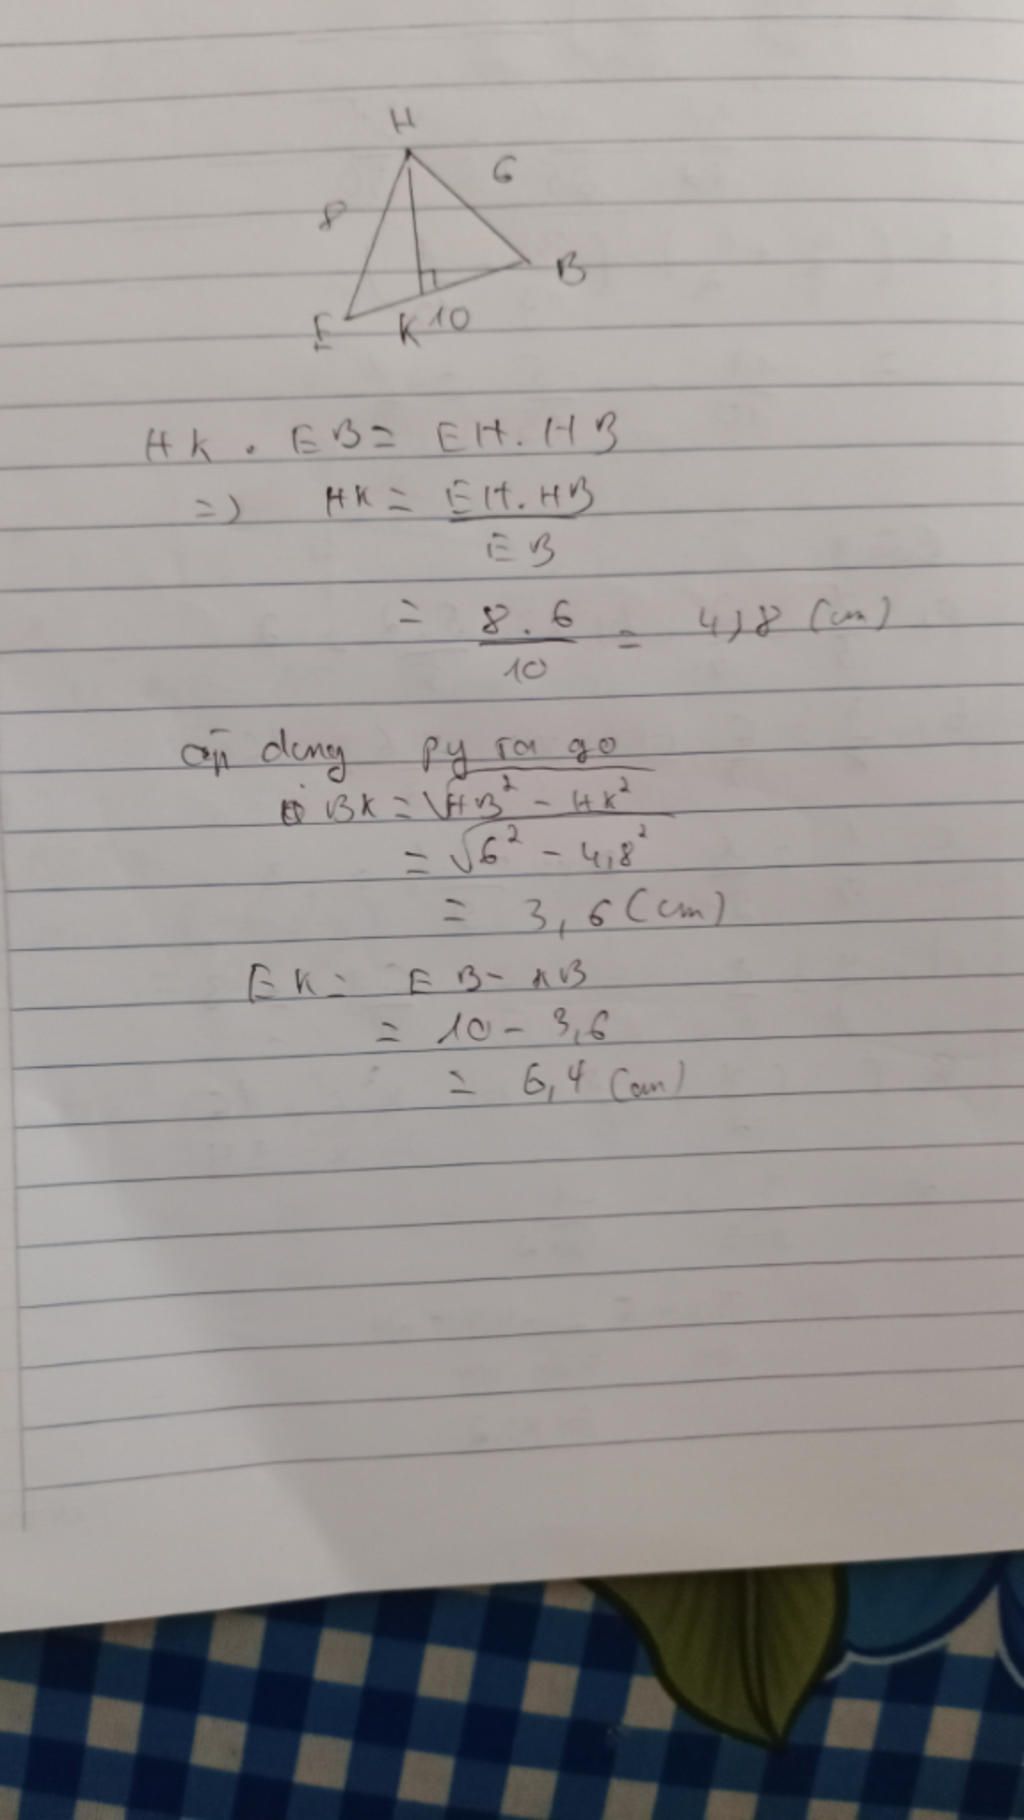 H
6
8
B
E
K 10
HK . EB = EH . HB
=) HK = EH . HB
EB
= 8 . 6 = 4,8 (cm)
10
dụng py ta go
BK = √HB² - HK²
= √6² - 4,8²
= 3,6 (cm)
EK = EB - KB
= 10 - 3,6
= 6,4 (cm)